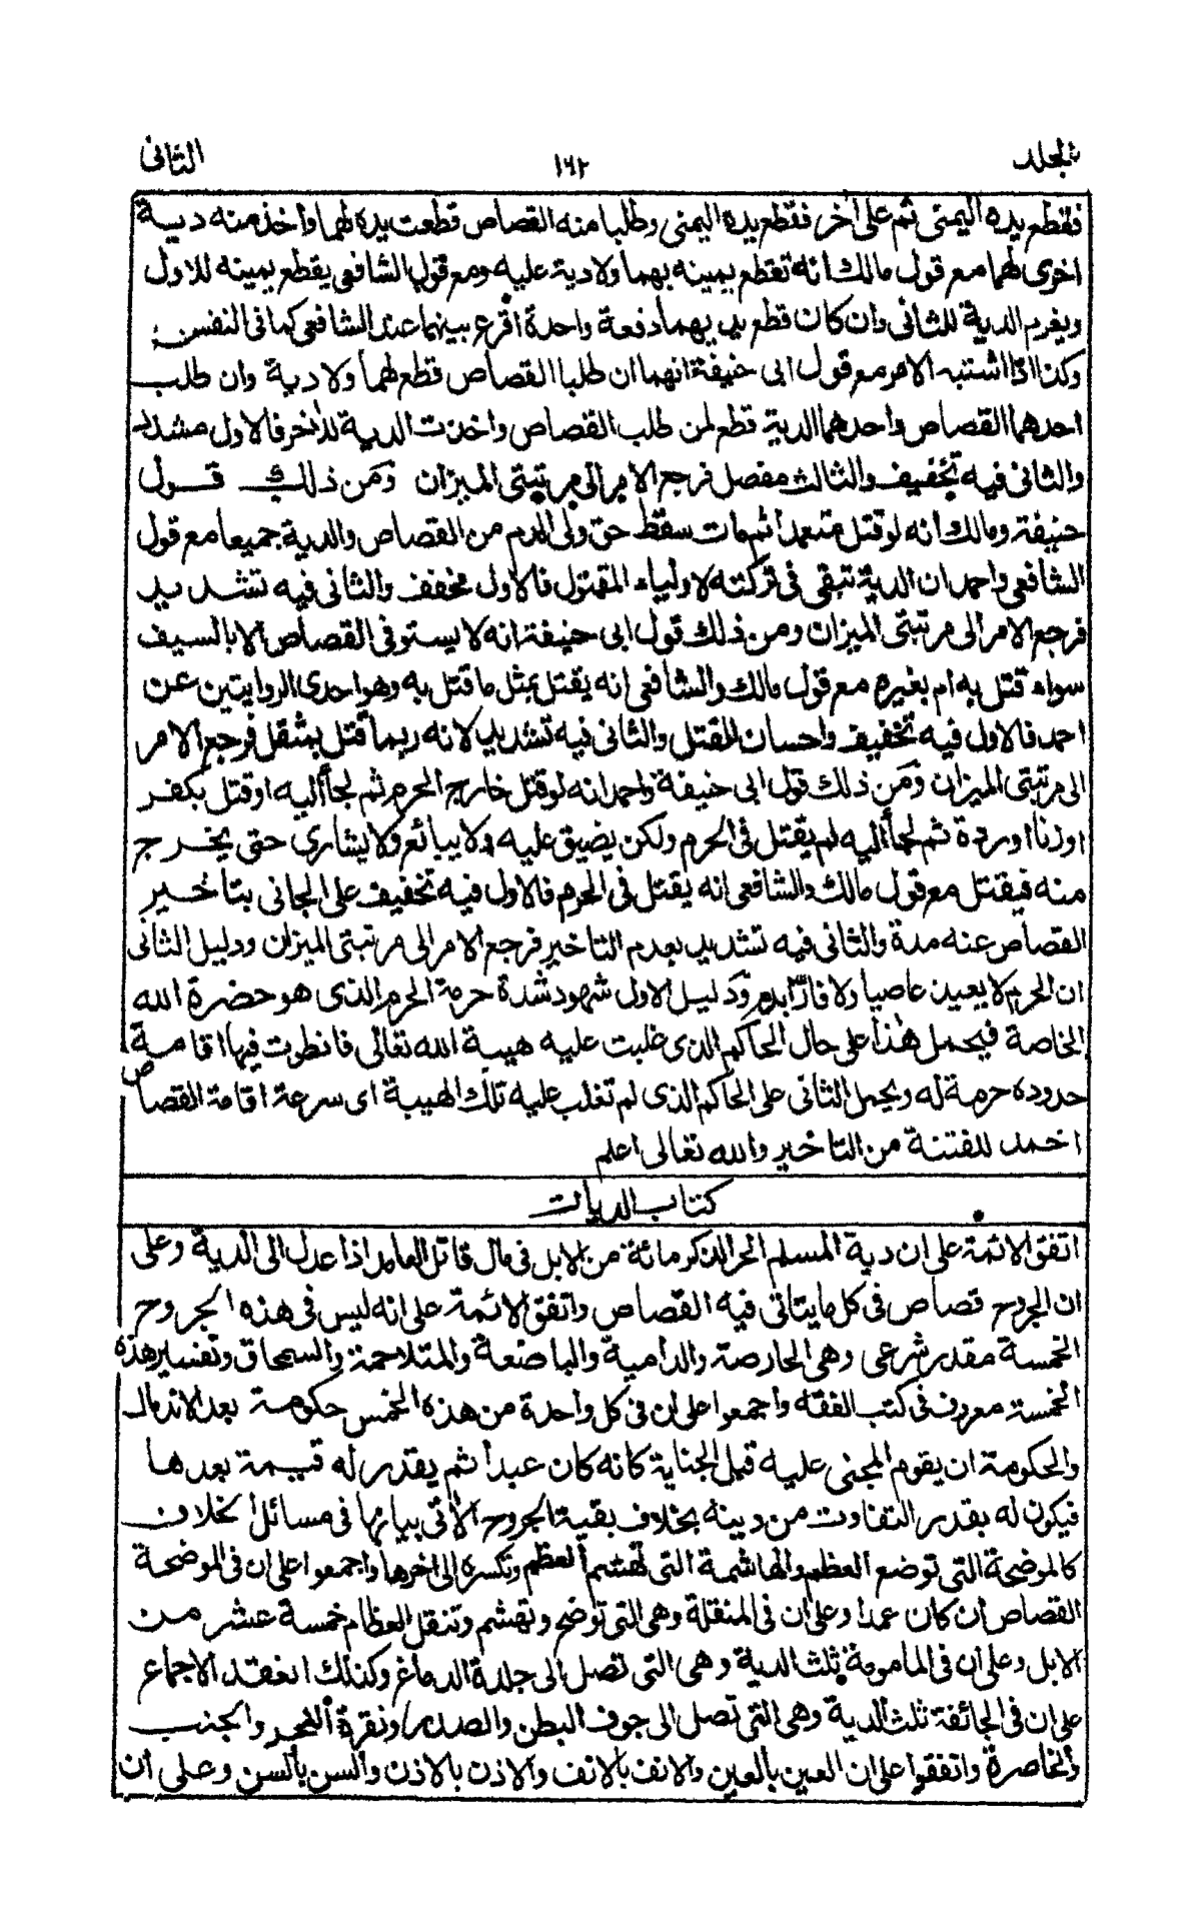 المجلد
١٦٢
الثانى
فقطع يده اليمنى ثم على آخر فقطع يده اليمنى وطلبا منه القصاص قطعت يده لهما واخذ منه دية
اخرى لهما مع قول مالك انه تقطع يمينه بهما ولا دية عليه ومع قول الشافعى يقطع يمينه للاول
ويغرم الدية للثانى وان كان قطع يديهما دفعة واحدة اقرع بينهما عند الشافعى كما فى النفس
وكذا اذا اشتبه الامر مع قول ابى حنيفة انهما ان طلبا القصاص قطع لهما ولا دية وان طلب
احدهما القصاص واحدهما الدية قطع لمن طلب القصاص واخذت الدية للآخر فالاول مشدد
والثانى فيه تخفيف والثالث مفصل فرجع الامر الى مرتبتى الميزان ومن ذلك قول
حنيفة ومالك انه لو قتل متعمدا ثم مات سقط حق ولى الدم من القصاص والدية جميعا مع قول
الشافعى واحمد ان الدية تبقى فى تركته لاولياء المقتول فالاول مخفف والثانى فيه تشديد
فرجع الامر الى مرتبتى الميزان ومن ذلك قول ابى حنيفة انه لا يستوفى القصاص الا بالسيف
سواء قتل به ام بغيره مع قول مالك والشافعى انه يقتل بمثل ما قتل به وهو احدى الروايتين عن
احمد فالاول فيه تخفيف واحسان للقتل والثانى فيه تشديد لانه ربما قتل بمثقل فرجع الامر
الى مرتبتى الميزان ومن ذلك قول ابى حنيفة واحمد انه لو قتل خارج الحرم ثم لجأ اليه او قتل بكفر
او زنا او ردة ثم لجأ اليه لم يقتل فى الحرم ولكن يضيق عليه ولا يبائع ولا يشارى حتى يخرج
منه فيقتل مع قول مالك والشافعى انه يقتل فى الحرم فالاول فيه تخفيف على الجانى بتاخير
القصاص عنه مدة والثانى فيه تشديد بعدم التاخير فرجع الامر الى مرتبتى الميزان ودليل الثانى
ان الحرم لا يعيذ عاصيا ولا فارّا بدم ودليل الاول شهود شدة حرمة الحرم الذى هو حضرة الله
الخاصة فيحمل هذا على حال الحاكم الذى غلبت عليه هيبة الله تعالى فانطوت فيها اقامة
حدوده حرمة له ويحمل الثانى على الحاكم الذى لم تغلب عليه تلك الهيبة اى سرعة اقامة القصاص
اخمد للفتنة من التاخير والله تعالى اعلم
كتاب الديات
اتفق الائمة على ان دية المسلم الحر الذكر مائة من الابل فى مال قاتل العامد اذا عدل الى الدية وعلى
ان الجروح قصاص فى كل ما يتاتى فيه القصاص واتفق الائمة على انه ليس فى هذه الجروح
الخمسة مقدر شرعى وهى الحارصة والدامية والباضعة والمتلاحمة والسمحاق وتفسير هذه
الخمسة معروف فى كتب الفقه واجمعوا على ان فى كل واحدة من هذه الخمس حكومة بعد الاندمال
والحكومة ان يقوم المجنى عليه قبل الجناية كانه كان عبدا ثم يقدر له قيمة بعدها
فيكون له بقدر التفاوت من ديته بخلاف بقية الجروح الآتى بيانها فى مسائل الخلاف
كالموضحة التى توضح العظم والهاشمة التى تهشم العظم وتكسره الى اخرها واجمعوا على ان فى الموضحة
القصاص ان كان عمدا وعلى ان فى المنقلة وهى التى توضح وتهشم وتنقل العظام خمسة عشر من
الابل وعلى ان فى المامومة ثلث الدية وهى التى تصل الى جلدة الدماغ وكذلك انعقد الاجماع
على ان فى الجائفة ثلث الدية وهى التى تصل الى جوف البطن والصدر ونقرة النحر والجنب
والخاصرة واتفقوا على ان العين بالعين والانف بالانف والاذن بالاذن والسن بالسن وعلى ان